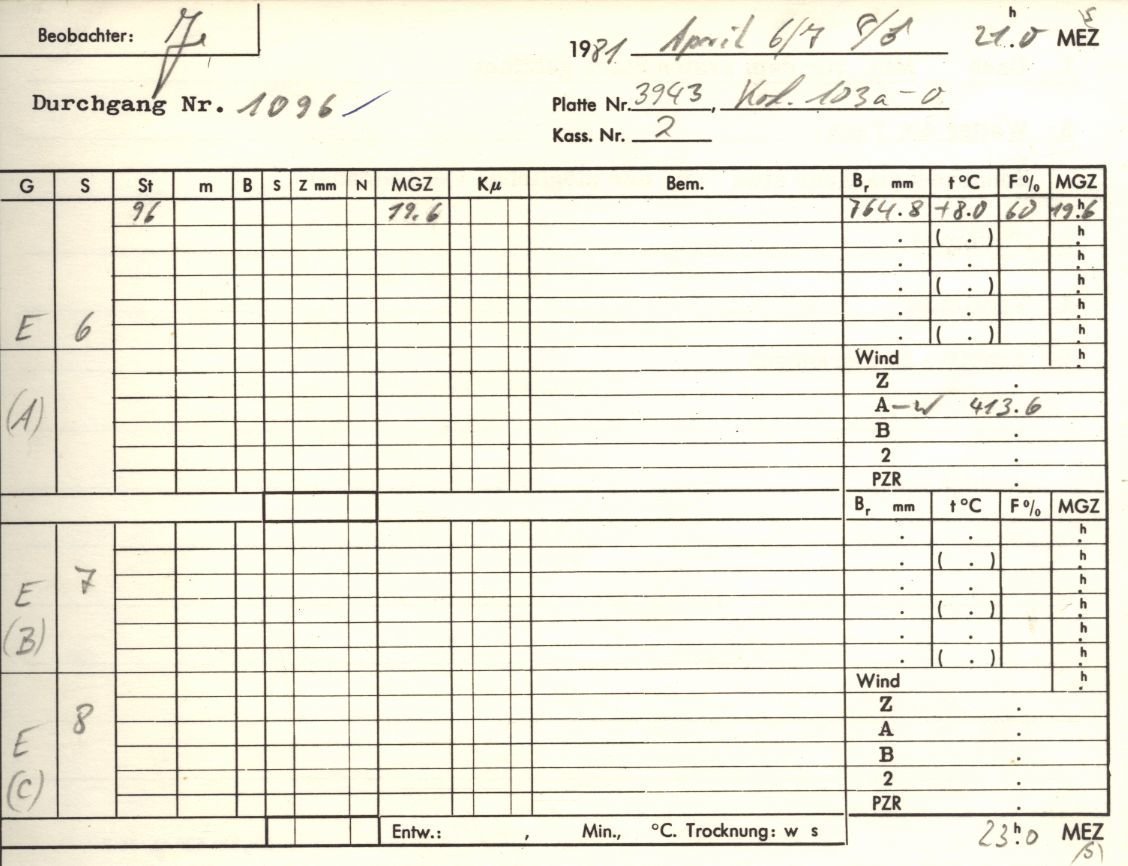 Beobachter: Je
1981 April 6/7 21ʰ.0 MEZ
Durchgang Nr. 1096
Platte Nr. 3943, Kod. 103a-0
Kass. Nr. 2
G S St m B S Z mm N MGZ Kμ Bem. Bᵣ mm t°C F% MGZ
96 19.6 764.8 +8.0 60 19ʰ.6
. ( . ) h.
. . h.
. ( . ) h.
. . h.
E 6 . ( . ) h.
Wind h.
Z .
(A) A-w 413.6
B .
2 .
PZR .
Bᵣ mm t°C F% MGZ
. . h.
. ( . ) h.
7 . . h.
E . ( . ) h.
(B) . . h.
. ( . ) h.
Wind h.
8 Z .
E A .
B .
(C) 2 .
PZR .
Entw.: , Min., °C. Trocknung: w s
23ʰ.0 MEZ
(S)